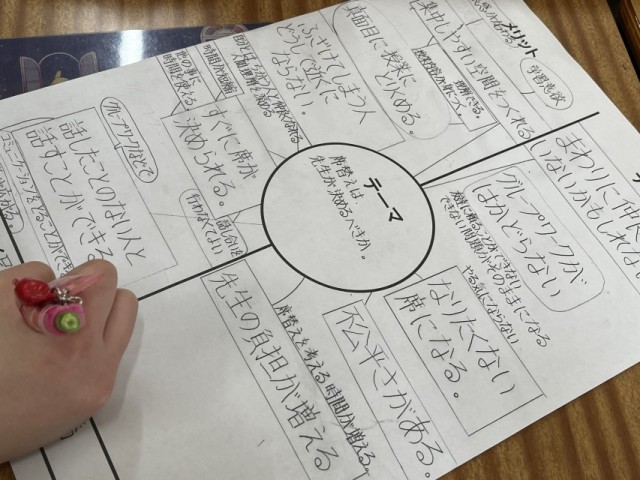 テーマ
席替えは、
先生が決めるべきか。
メリット
学習意欲
集中しやすい空間をつくれる
真面目に授業に
とり組める。
ふざけてしまう人
どうしが近くに
ならない。
すぐに席が
決められる。
時間が短縮
他の事に
時間を使える
話し合いを
行わなくてよい
グループワークなどで
話したことのない人と
話すことができる
まわりに仲
いないかもしれな
グループワークが
はかどらない
友達に頼ることができない
できない問題がそのままになる
やる気にならない
なりたくない
席になる。
不公平さがある。
先生の負担が増える
席替えを考える時間が増える。